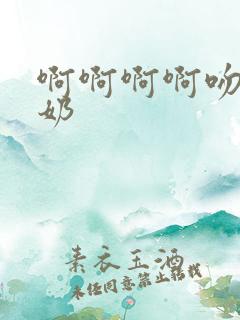 啊啊啊啊吻
奶
素衣玉酒
未经同意禁止转载